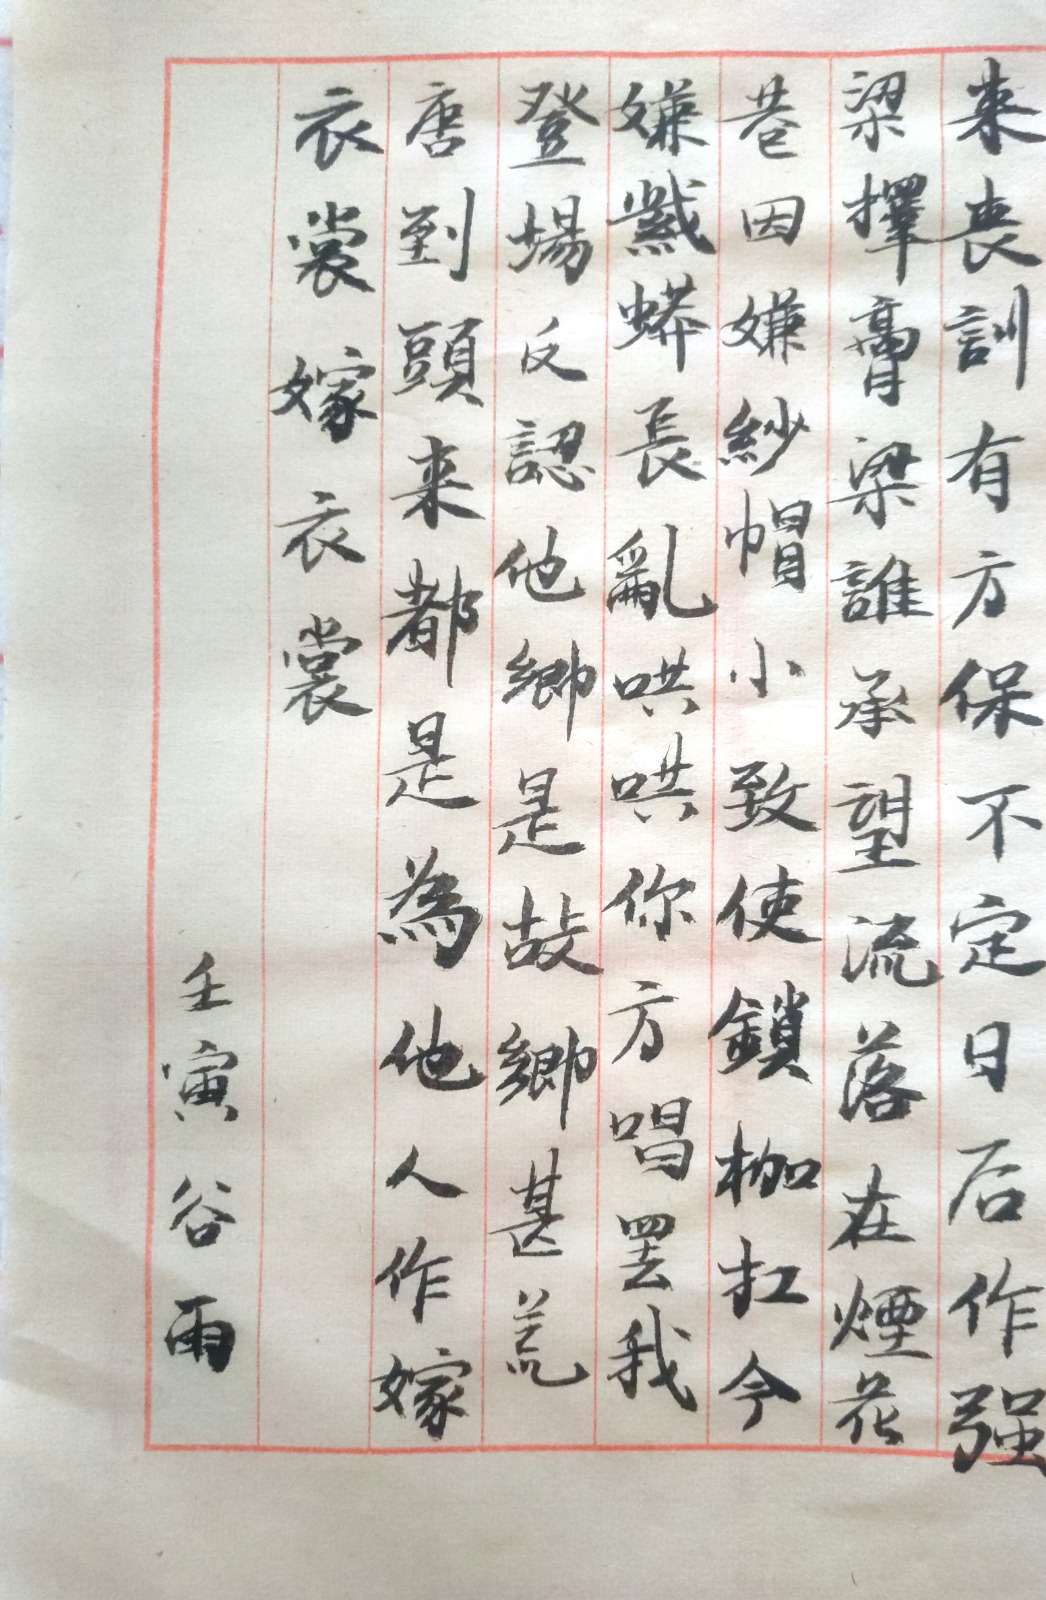 来丧訓有方保不定日后作强
梁擇膏粱誰承望流落在煙花
巷因嫌紗帽小致使鎖枷扛今
嫌紫蟒長亂哄哄你方唱罢我
登場反認他鄉是故鄉甚荒
唐到頭来都是為他人作嫁
衣裳嫁衣裳
壬寅谷雨